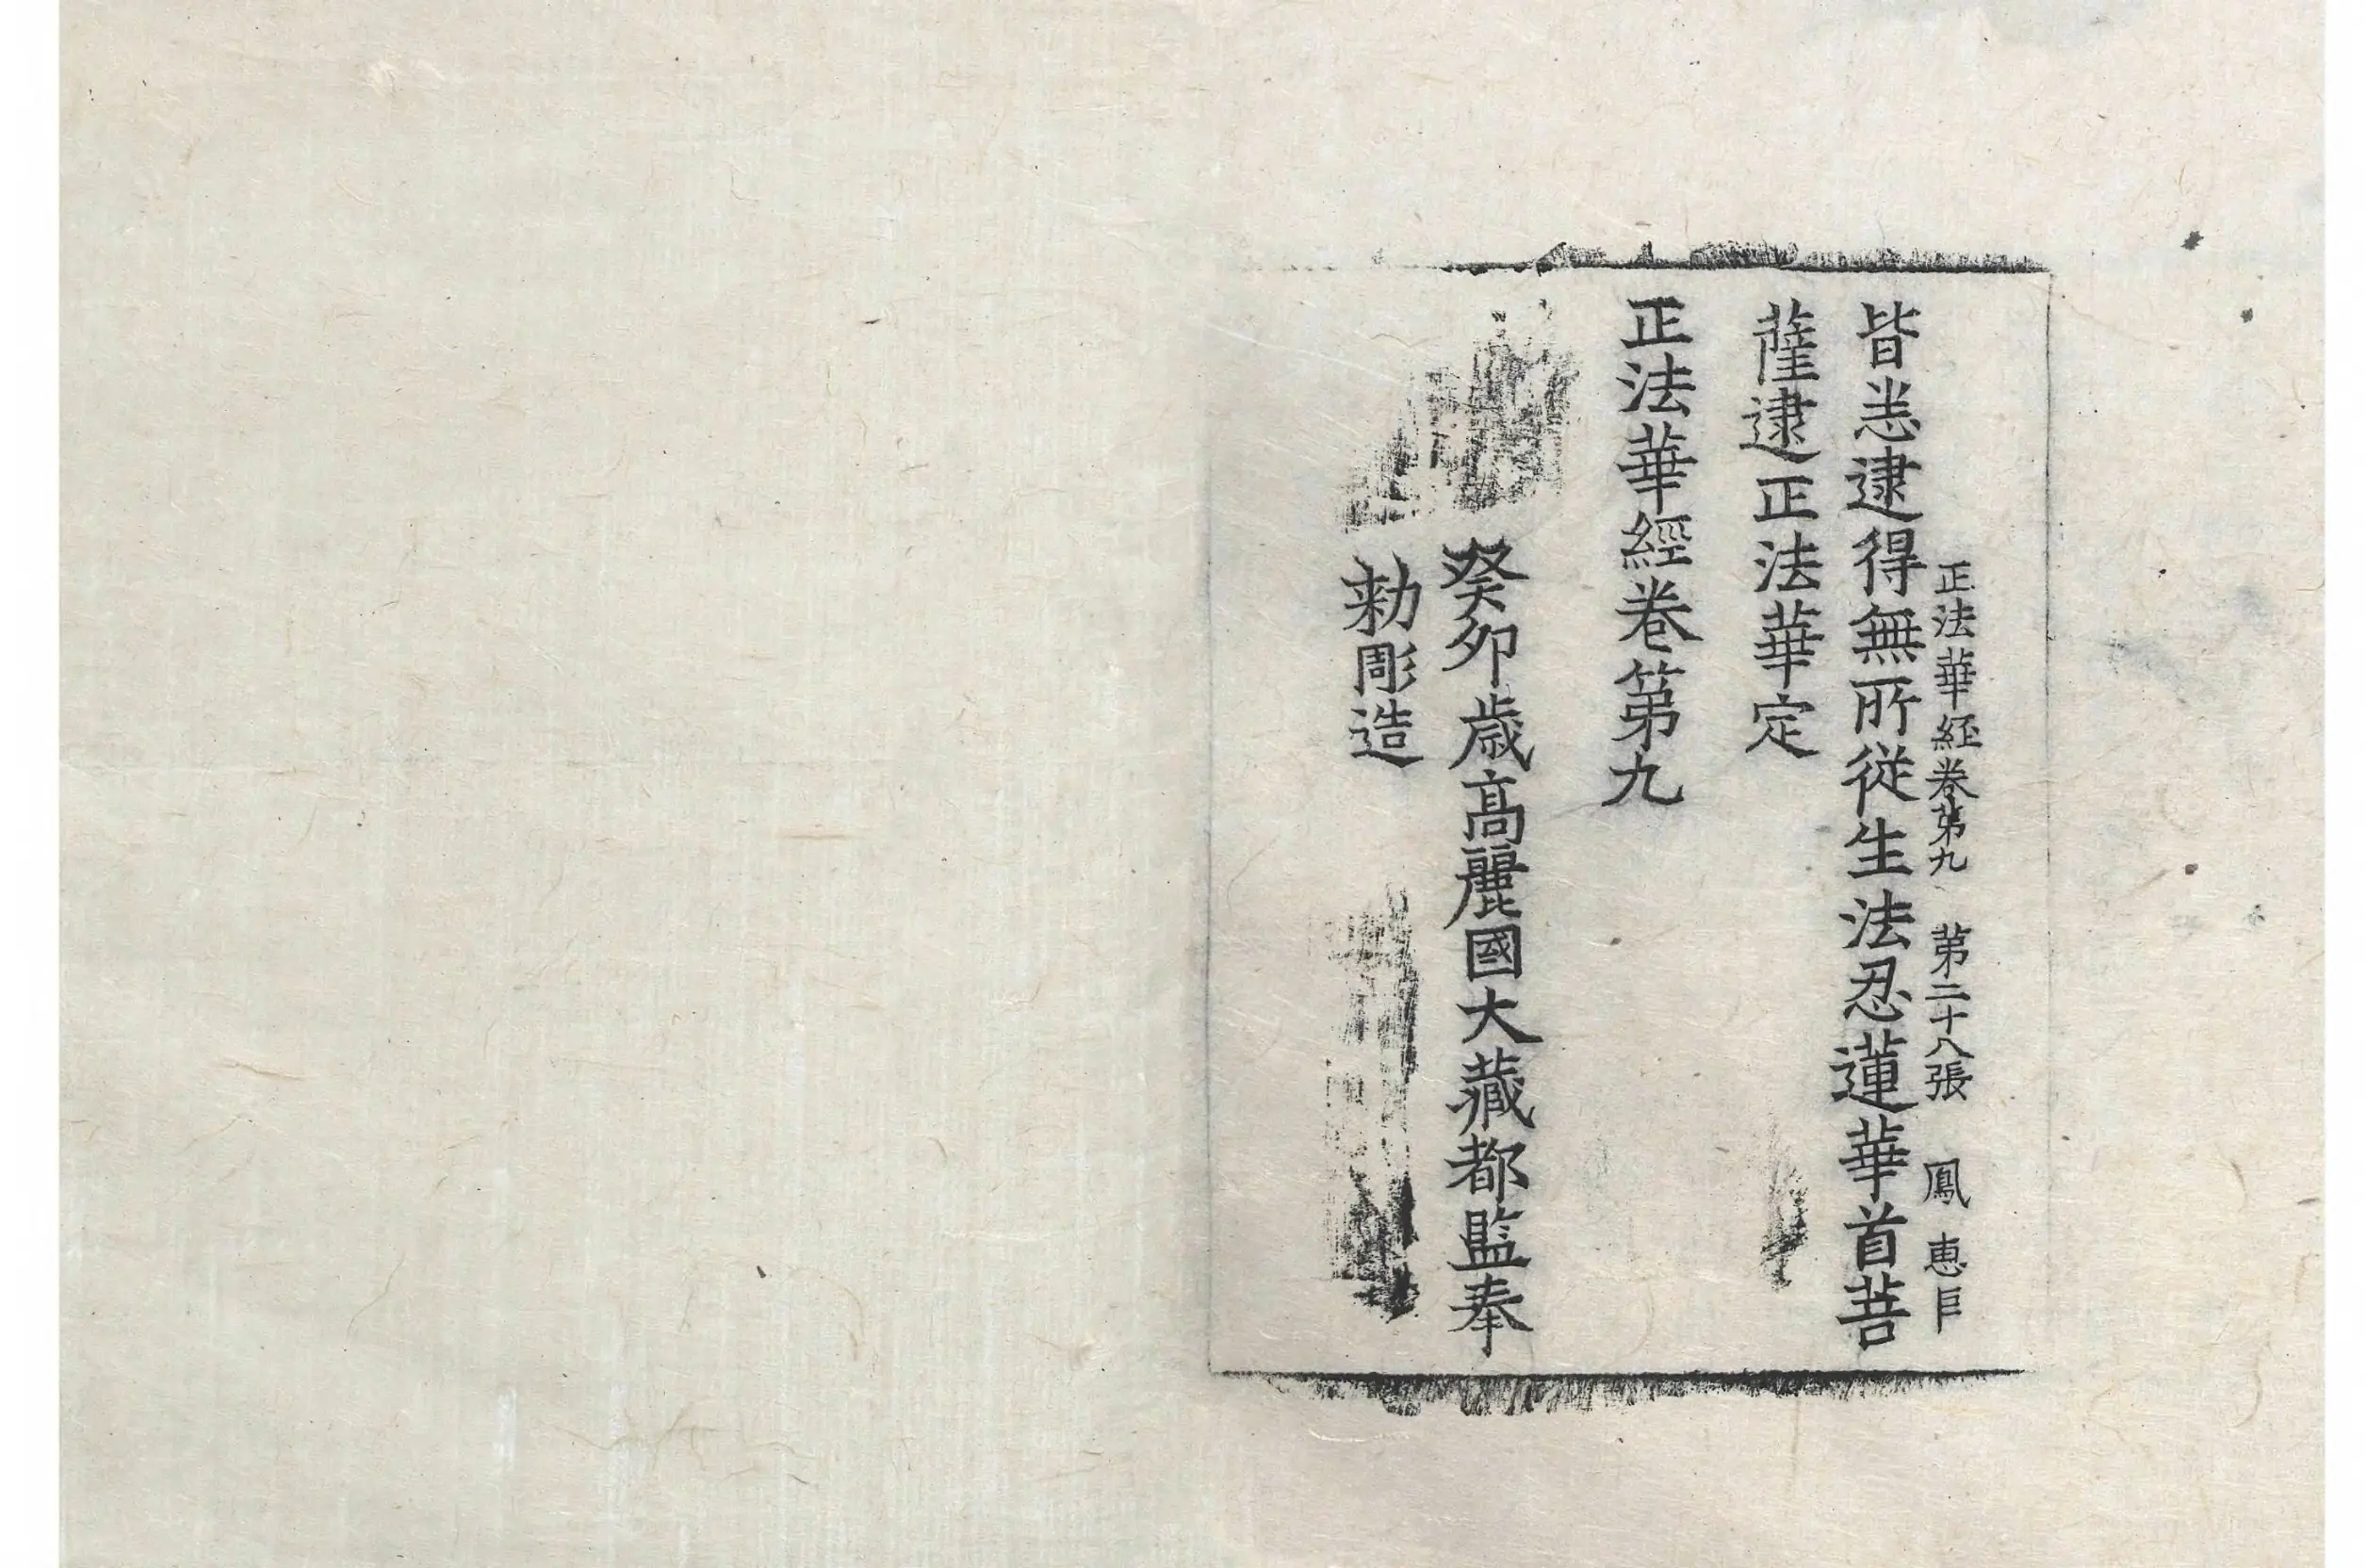 正法華経卷第九 第二十八張 鳳 恵巨
皆悉逮得無所從生法忍蓮華首菩
薩逮正法華定
正法華經卷第九
癸卯歳高麗國大藏都監奉
勑彫造